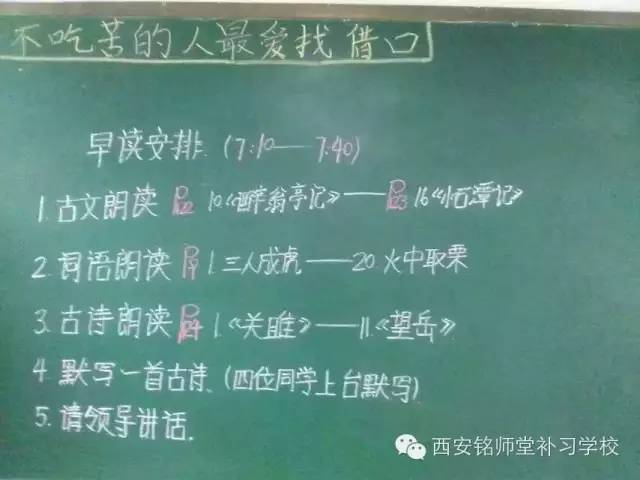 不吃苦的人最爱找借口
早读安排.(7:10——7:40)
1.古文朗读 P12 10《醉翁亭记》——P23 16《小石潭记》
2.词语朗读 P1 1.三人成虎——20.火中取栗
3.古诗朗读 P24 1.《关雎》——11.《望岳》
4.默写一首古诗.(四位同学上台默写)
5.请领导讲话.
西安铭师堂补习学校